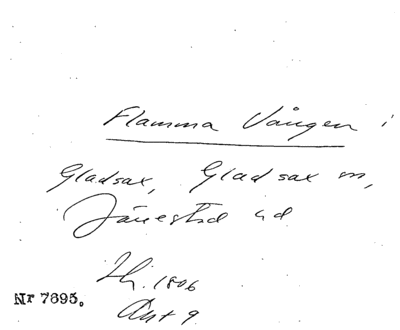 Flamma Vången i
Gladsax, Gladsax sn,
Järrestad hd
Lh. 1806
Akt 9
Nr 7695.